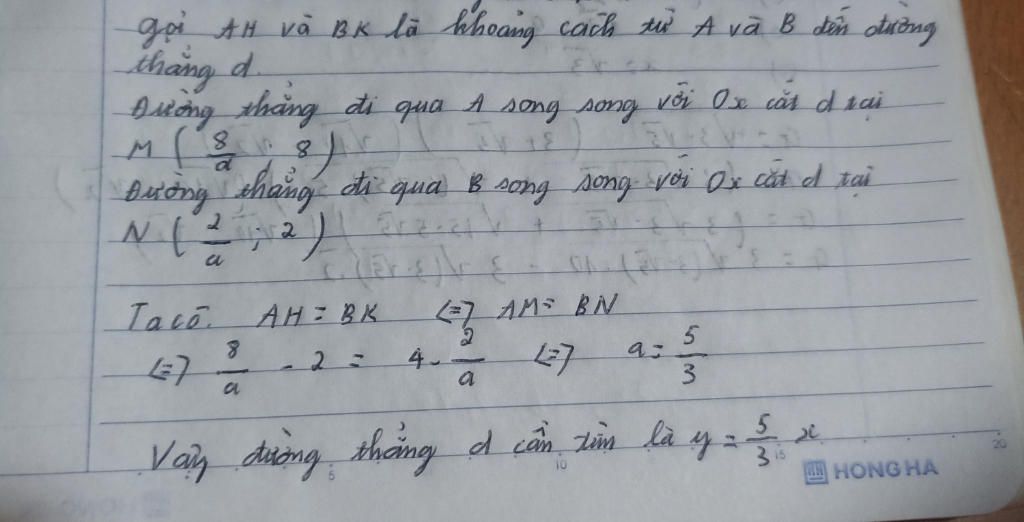 gọi AH và BK là khoảng cách từ A và B đến đường
thẳng d.
Đường thẳng đi qua A song song với Ox cắt d tại
M ( 8/a ; 8 )
Đường thẳng đi qua B song song với Ox cắt d tại
N ( 2/a ; 2 )
Ta có: AH = BK <=> AM = BN
<=> 8/a - 2 = 4 - 2/a <=> a = 5/3
Vậy đường thẳng d cần tìm là y = 5/3 x
5 10 15 20
HONG HA